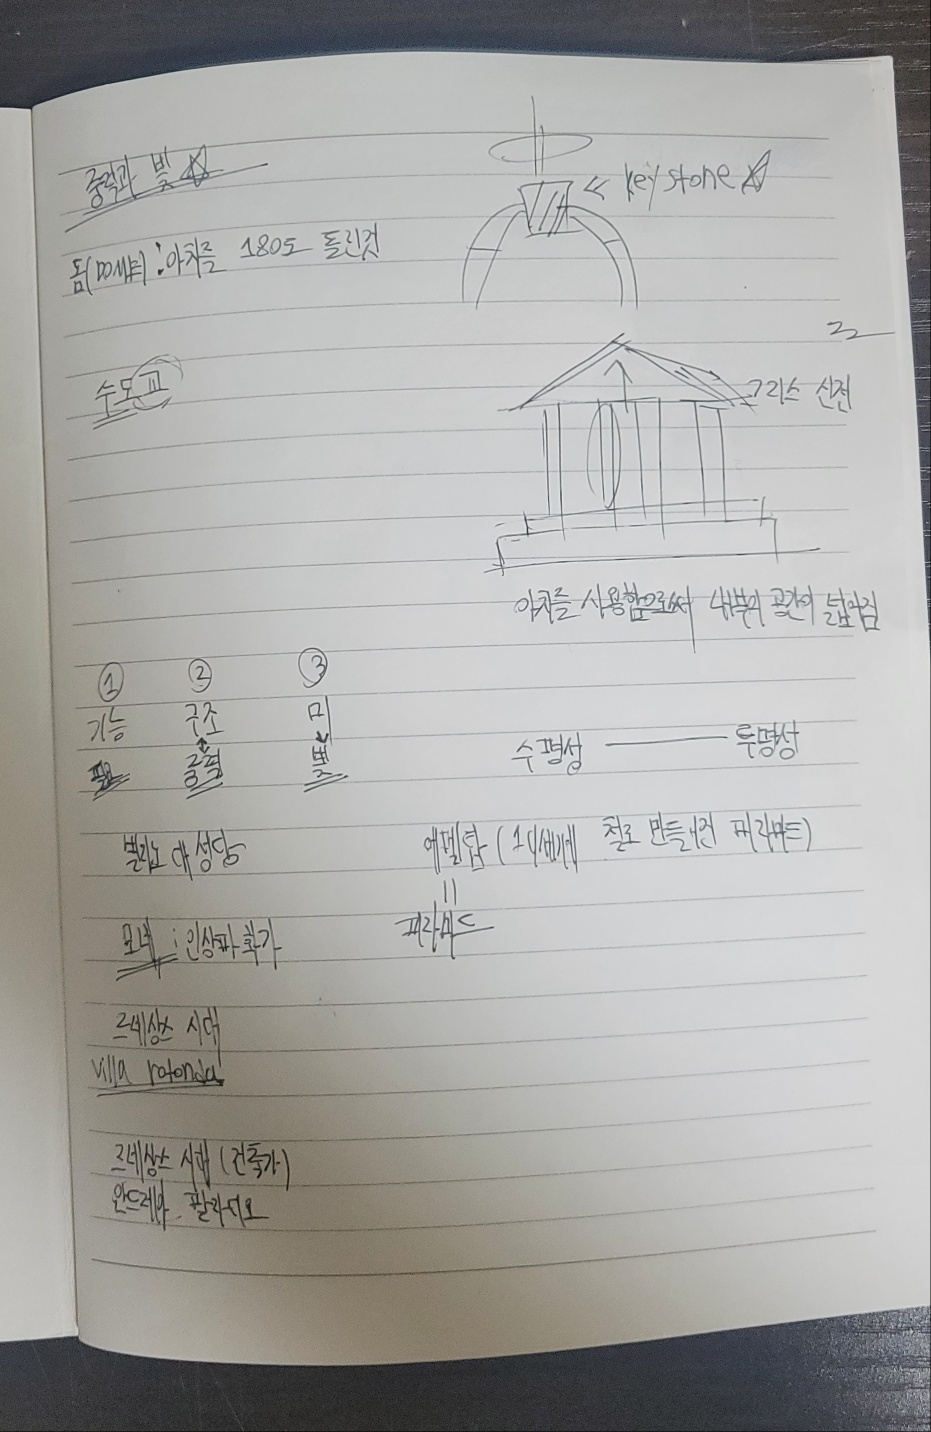 중력과 빛
<< keystone
돔(mosque) : 아치를 180도 돌린것
수도교
그리스 신전
아치를 사용함으로써 내부의 공간이 넓어짐
① ② ③
기능 구조 미
중력 빛
수평성 — 투명성
밀라노 대성당
에펠탑 (19세기에 철로 만들어진 피라미드)
=
피라미드
모네 : 인상파 화가
르네상스 시대
villa rotonda
르네상스 시대 (건축가)
안드레아 팔라디오